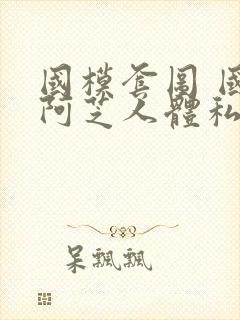 國模套圖 國
阿芝人體私
呆飄飄